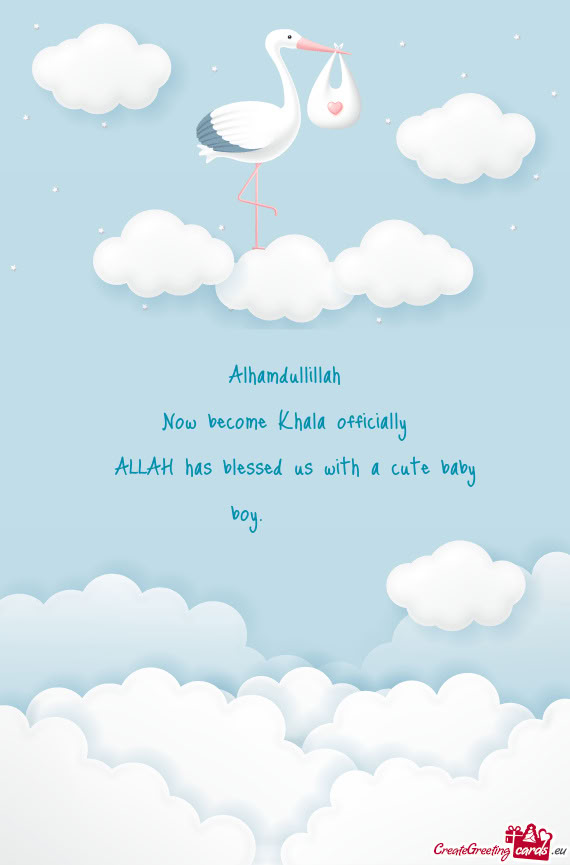 Alhamdullillah
Now become Khala officially
ALLAH has blessed us with a cute baby
boy.
CreateGreetingcards.eu